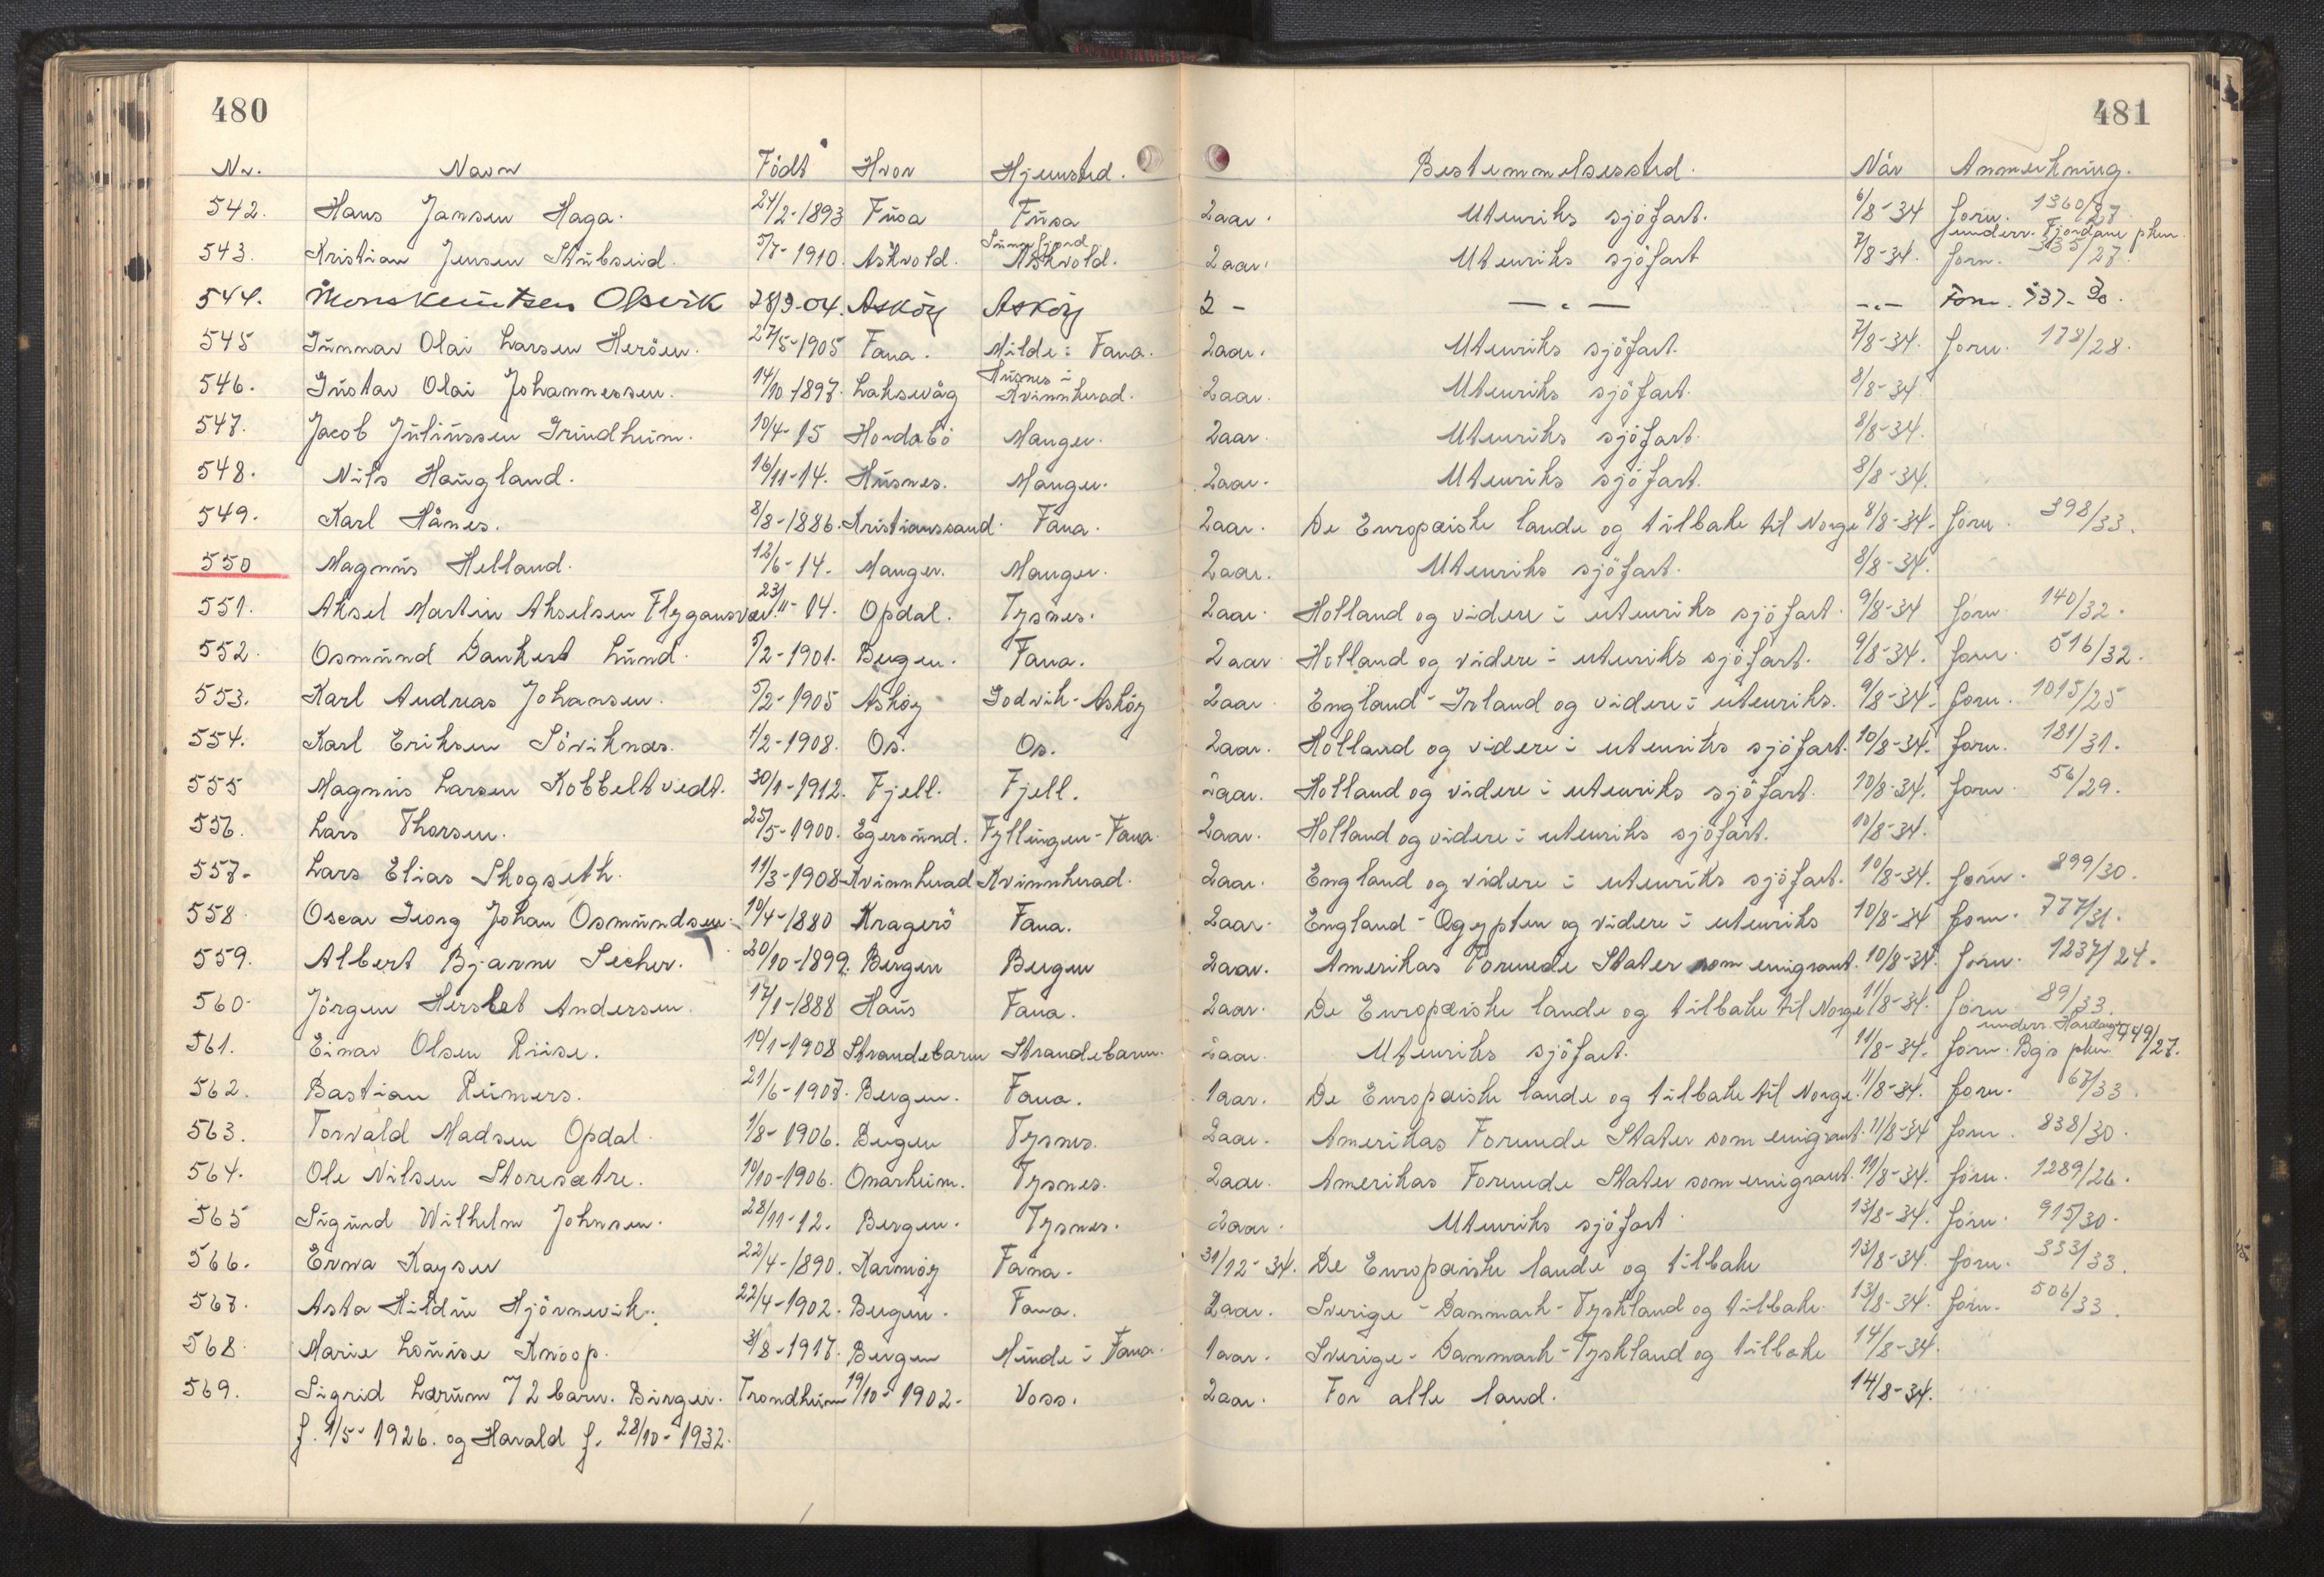 480
481
Nr. Navn Födt Hvor Hjemsted. Bestemmelsessted. Når Anmerkning.
542. Hans Jansen Haga. 24/2-1893 Fusa Fusa 2 aar. Utenriks sjöfart. 6/8-34 forn. 1360/27.
543. Kristian Jensen Stubseid. 5/7-1910. Askvold. Sunnfjord Askvold. 2 aar. Utenriks sjöfart 7/8-34. forn. underr. Fjordane pkm. 335/27.
544. Mons Knutsen Olsvik 28/9-04. Asköy Asköy 2 - — " — -"- Forn. 537-30.
545 Gunnar Olai Larsen Heröen. 27/5-1905 Fana. Milde i Fana. 2 aar. Utenriks sjöfart. 7/8-34. forn. 178/28.
546. Gustav Olai Johannessen. 14/10 1897. Laksevåg Husnes i Kvinnherad. 2 aar. Utenriks sjöfart. 8/8-34.
547. Jacob Juliussen Grindheim. 10/4-15 Hordabö Manger. 2 aar. Utenriks sjöfart. 8/8-34.
548. Nils Haugland. 16/11-14. Husnes. Manger. 2 aar. Utenriks sjöfart. 8/8-34.
549. Karl Hånes. 8/8-1886. Kristianssand. Fana. 2 aar. De Europæiske lande og tilbake til Norge 8/8-34. forn. 398/33.
550 Magnus Helland. 12/6-14. Manger. Manger. 2 aar. Utenriks sjöfart. 8/8-34.
551. Aksel Martin Akselsen Flygansvær. 23/11-04. Opdal. Tysnes. 2 aar. Holland og videre i utenriks sjöfart. 9/8-34 forn. 140/32.
552. Osmund Dankert Lund. 7/2-1901. Bergen. Fana. 2 aar Holland og videre i utenriks sjöfart. 9/8-34. forn. 516/32.
553. Karl Andreas Johansen. 5/2-1905 Asköy Godvik-Asköy 2 aar England-Irland og videre i utenriks. 9/8-34. forn. 1015/25
554. Karl Eriksen Söviknæs. 1/2-1908. Os. Os. 2 aar. Holland og videre i utenriks sjöfart. 10/8-34. forn. 181/31.
555 Magnus Larsen Kobbeltvedt. 30/1-1912. Fjell. Fjell. 2 aar. Holland og videre i utenriks sjöfart. 10/8-34. forn. 56/29.
556. Lars Thorsen. 25/5-1900. Egersund. Fyllingen-Fana. 2 aar. Holland og videre i utenriks sjöfart. 10/8-34.
557. Lars Elias Skogseth. 11/3-1908 Kvinnherad Kvinnherad. 2 aar. England og videre i utenriks sjöfart. 10/8-34. forn. 899/30.
558. Oscar Georg Johan Osmundsen. 10/4-1880 Kragerö Fana. 2 aar. England-Ægypten og videre i utenriks 10/8-34 forn. 777/31.
559. Albert Bjarne Secher. 20/10-1899. Bergen Bergen 2 aar. Amerikas Forenede Stater som emigrant. 10/8-34. forn. 1237/24.
560. Jörgen Herslet Andersen. 17/1-1888 Haus Fana. 2 aar. De Europæiske lande og tilbake til Norge 11/8-34. forn 89/33.
561. Einar Olsen Riise. 10/1-1908 Strandebarm Strandebarm. 2 aar. Utenriks sjöfart. 11/8-34. forn. underr. Hordag Bgs pkm. 449/27.
562. Bastian Reimers. 21/6-1907. Bergen. Fana. 1 aar. De Europæiske lande og tilbake til Norge. 11/8-34. forn. 67/33.
563. Torvald Madsen Opdal. 1/8-1906. Bergen Tysnes. 2 aar. Amerikas Forenede Stater som emigrant. 11/8-34 forn. 838/30.
564. Ole Nilsen Storesætre. 10/10-1906. Onarheim. Tysnes. 2 aar. Amerikas Forenede Stater som emigrant. 11/8-34. forn. 1289/26.
565 Sigurd Wilhelm Johnsen. 28/11-12. Bergen. Tysnes. 2 aar. Utenriks sjöfart. 13/8-34. forn. 915/30.
566. Erna Kayser 22/4-1890. Karmöy Fana. 31/12-34. De Europæiske lande og tilbake 13/8-34. forn. 333/33.
567. Asta Hildur Hjörnevik. 22/4-1902. Bergen. Fana. 2 aar. Sverige-Danmark-Tyskland og tilbake. 13/8-34. forn. 506/33.
568. Marie Louise Knoop. 3/8-1917. Bergen Minde i Fana. 1 aar. Sverige-Danmark-Tyskland og tilbake 14/8-34.
569. Sigrid Lærum 7 2 barn. Birger. Trondheim 19/10-1902. Voss. 2 aar. For alle land. 14/8-34.
f. 1/5-1926. og Harald f. 28/10-1932.